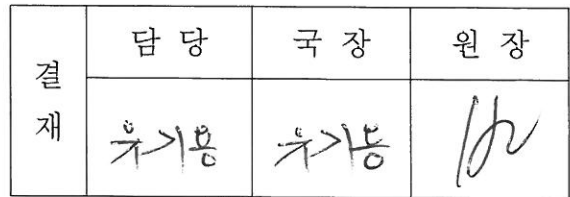 결재
담 당
국 장
원 장
유기용
유기용